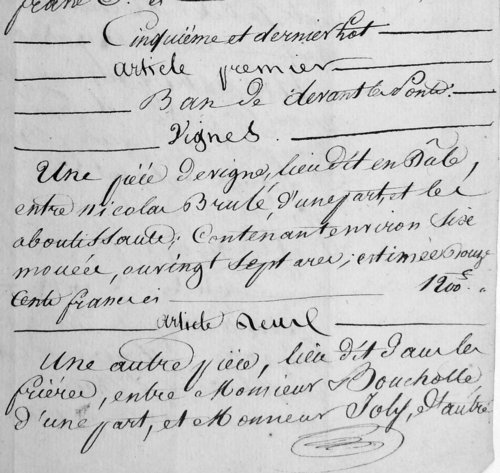 francs et
Cinquième et dernier Lot
article premier
Ban de devant les Ponts.
Vignes
Une pièce de vigne, lieu dit en Bâle,
entre nicolas Brulé d'une part, et les
aboutissants; Contenant environ Six
mouées, ou vingt Sept ares; estimée Douze
Cents francs ci 1200 f. "
article Deux
Une autre pièce, lieu dit Dans les
frières, entre Monsieur Boucholle
d'une part, et Monsieur Joly, d'autre